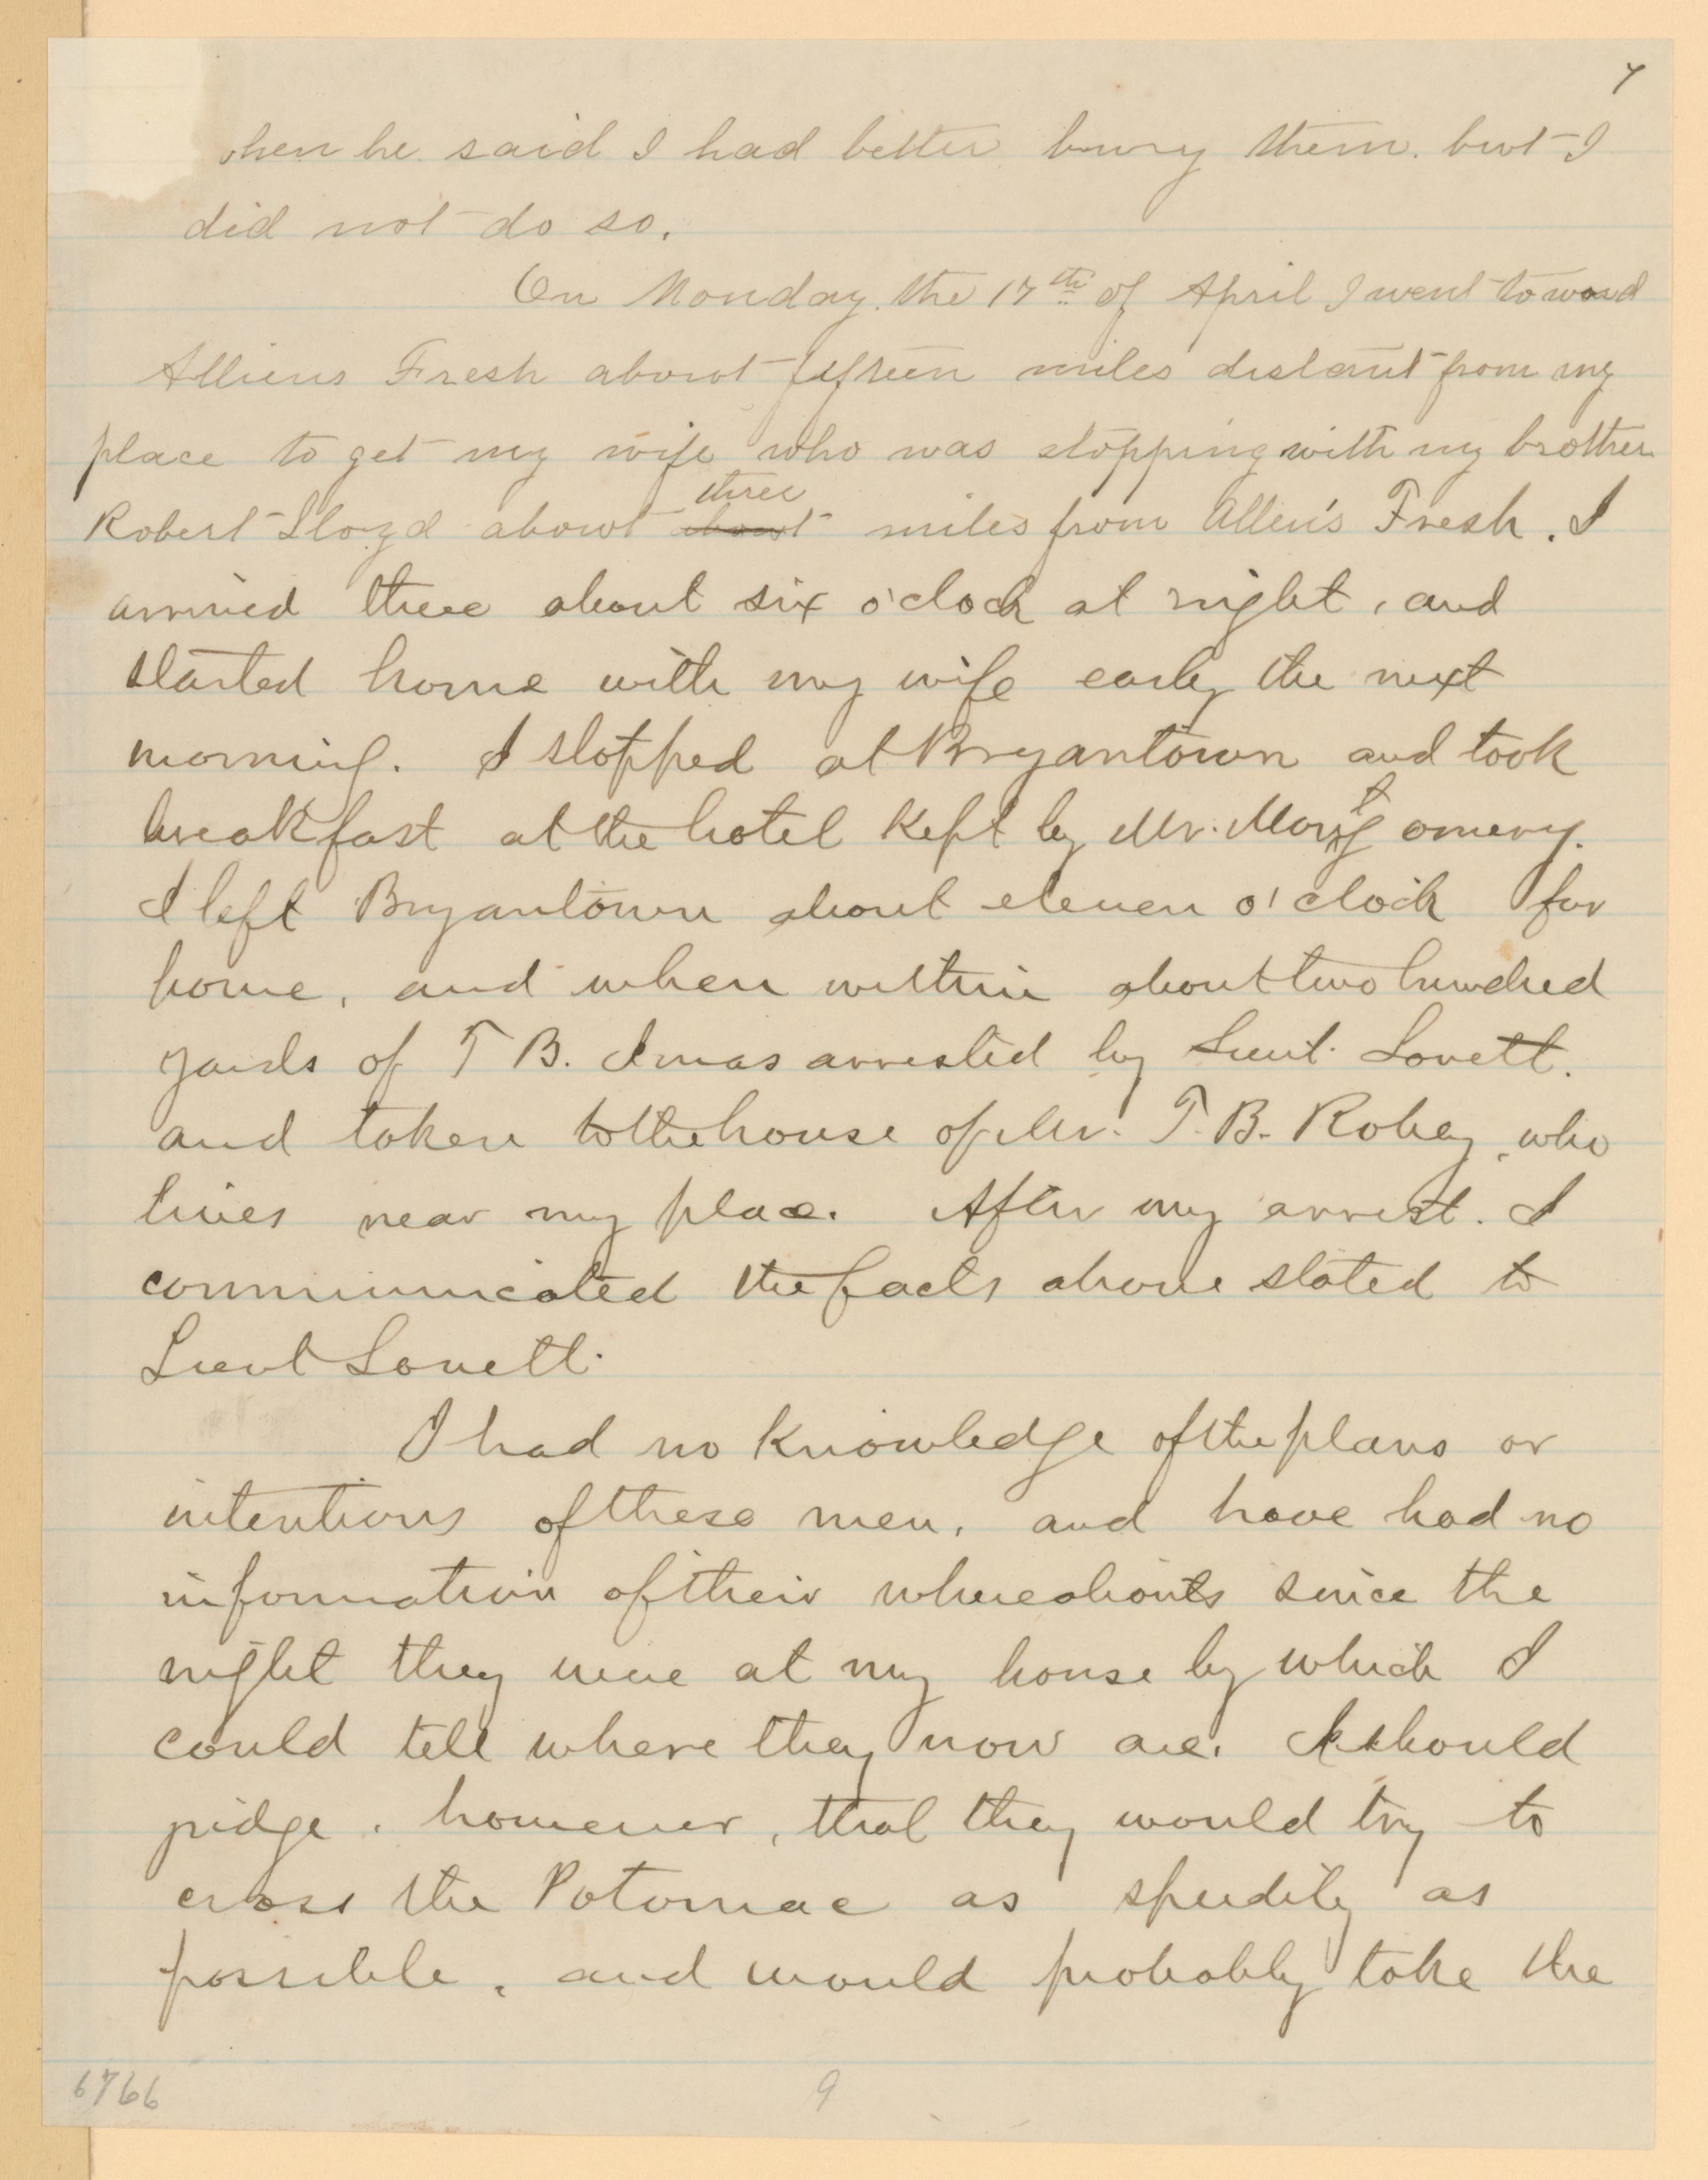 7
when he said I had better bury them. but I
did not do so.
On Monday. the 17th of April I went toward
Alliens Fresh about fifteen miles distant from my
place to get my wife who was stopping with my brother
three
Robert Lloyd about about miles from Allen's Fresh. I
arrived there about six o'clock at night, and
started home with my wife early the next
morning. I stopped at Bryantown and took
breakfast at the hotel kept by Mr. Montgomery.
I left Bryantown about eleven o'clock for
home, and when within about two hundred
yards of T B. I was arrested by Lieut. Lovett.
and taken to the house of Mr. T. B. Robey, who
lives near my place. After my arrest. I
communicated the facts above stated to
Lieut Lovett.
I had no knowledge of the plans or
intentions of these men, and have had no
information of their whereabouts since the
night they were at my house by which I
could tell where they now are. I should
judge, however, that they would try to
cross the Potomac as speedily as
possible, and would probably take the
6766
9